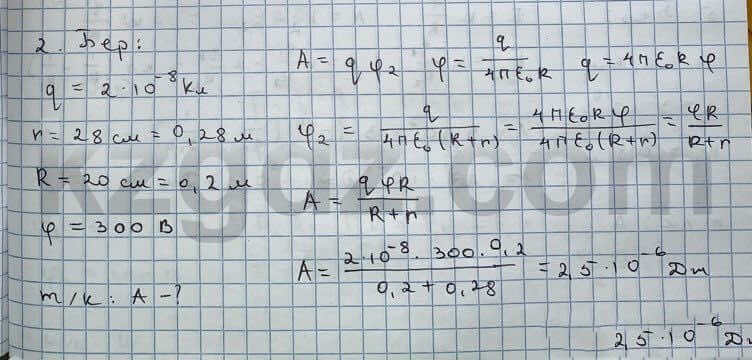 2. Бер:
q = 2·10⁻⁸ Кл
r = 28 см = 0,28 м
R = 20 см = 0,2 м
φ = 300 В
т/к: А -?
A = qφ₂ φ = q/4πε₀R q = 4πε₀Rφ
φ₂ = q/4πε₀(R+r) = 4πε₀Rφ/4πε₀(R+r) = φR/R+r
A = qφR/R+r
A = 2·10⁻⁸·300·0,2/0,2+0,28 = 2,5·10⁻⁶ Дж
2,5·10⁻⁶ Дж
kzgdz.com